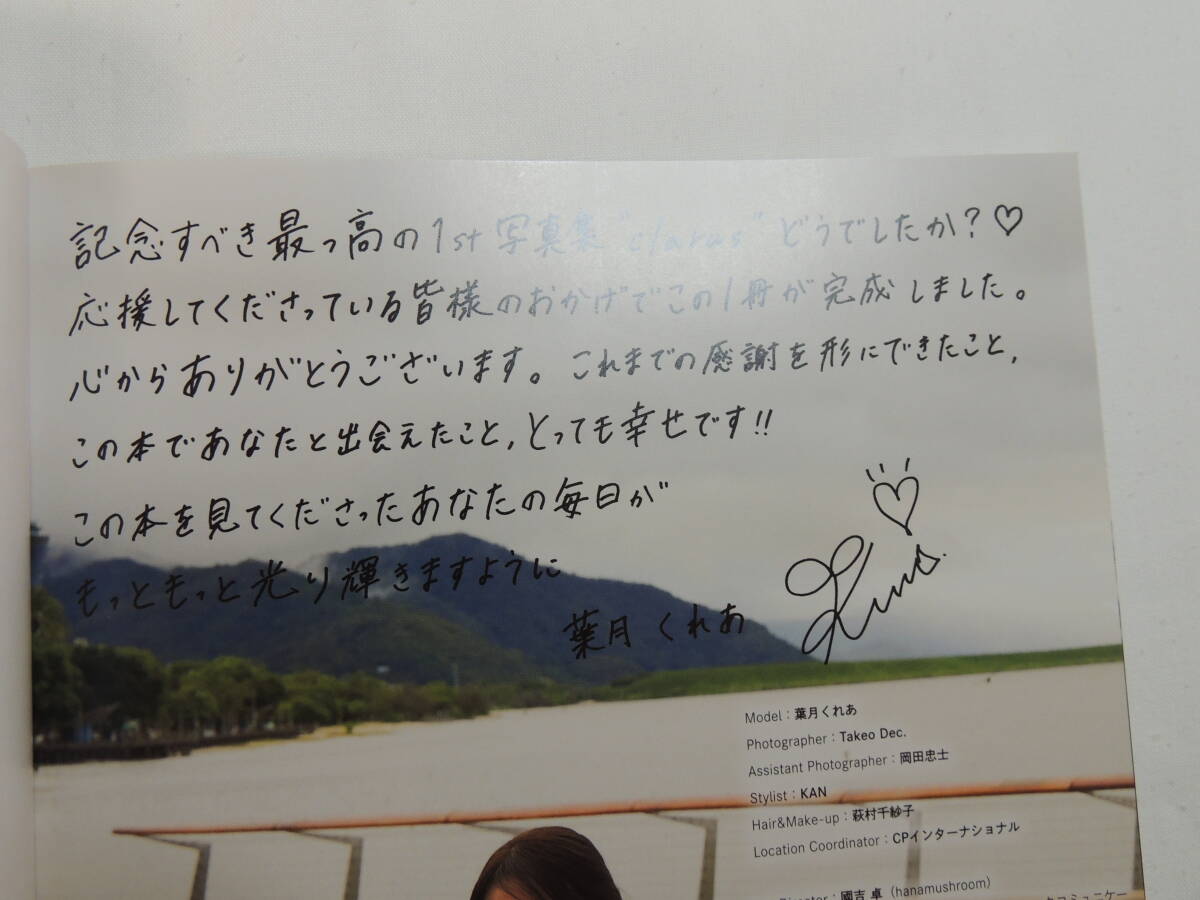 記念すべき最っ高の1st写真集"clarus"どうでしたか?♡
応援してくださっている皆様のおかげでこの1冊が完成しました。
心からありがとうございます。これまでの感謝を形にできたこと,
この本であなたと出会えたこと,とっても幸せです!!
この本を見てくださったあなたの毎日が
もっともっと光り輝きますように
葉月くれあ
Model:葉月くれあ
Photographer:Takeo Dec.
Assistant Photographer:岡田忠士
Stylist:KAN
Hair&Make-up:萩村千紗子
Location Coordinator:CPインターナショナル
Director:國吉 卓(hanamushroom)